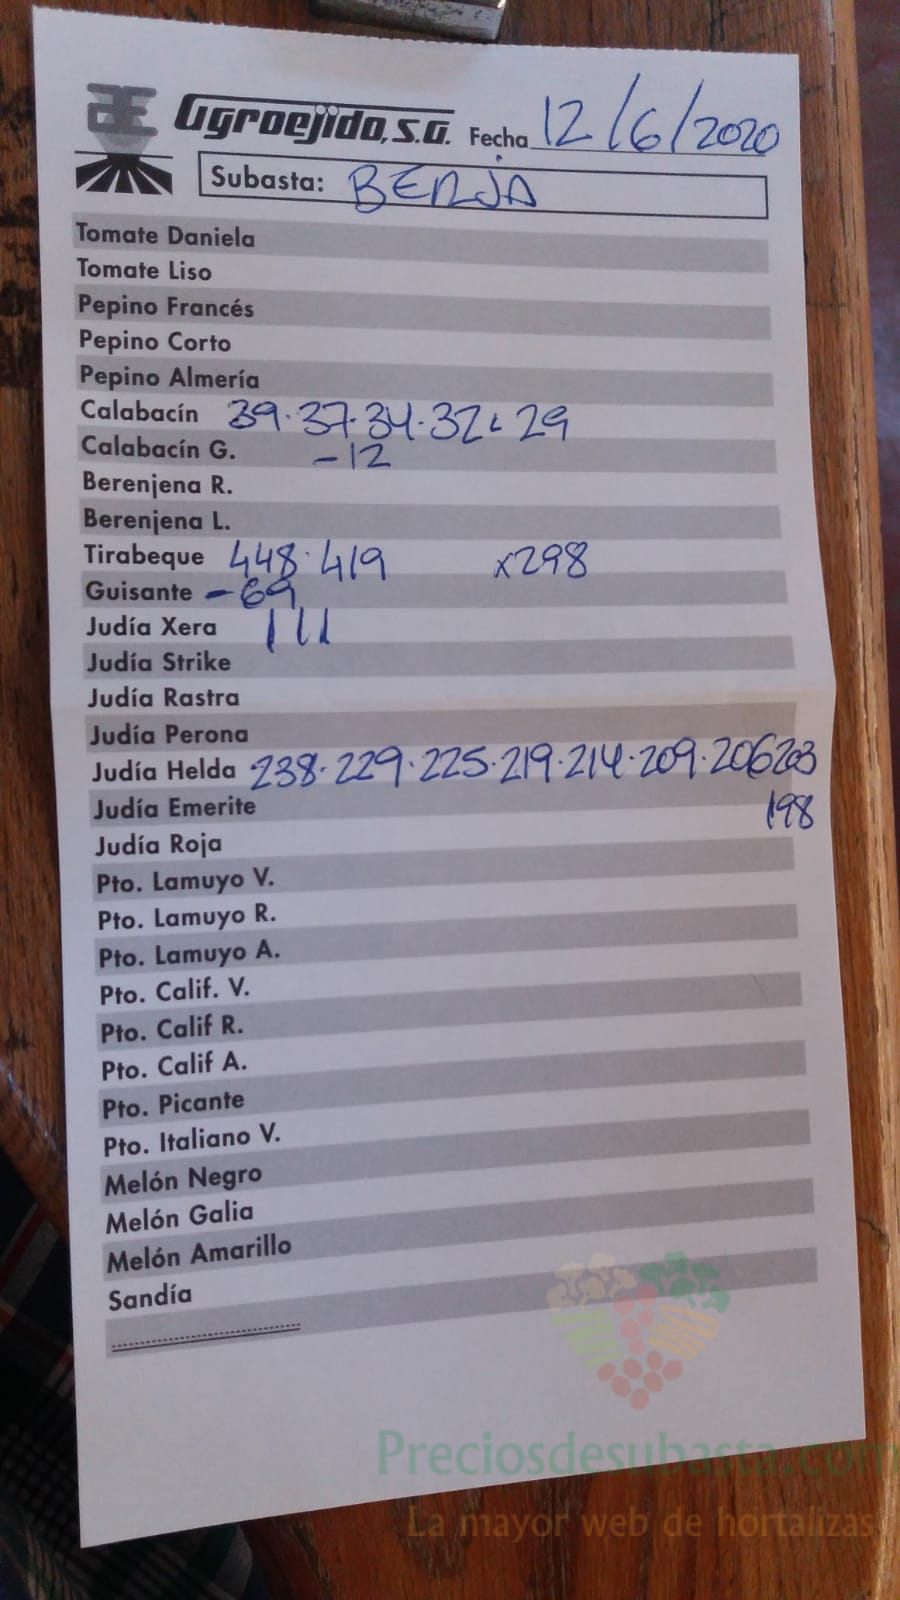 Agroejido, S.A. Fecha 12/6/2020
Subasta: BERJA
Tomate Daniela
Tomate Liso
Pepino Francés
Pepino Corto
Pepino Almería
Calabacín 39·37·34·32·29
Calabacín G. -12
Berenjena R.
Berenjena L.
Tirabeque 448·419 x298
Guisante -69
Judía Xera
Judía Strike
Judía Rastra
Judía Perona
Judía Helda 238·229·225·219·214·209·206 203
Judía Emerite 198
Judía Roja
Pto. Lamuyo V.
Pto. Lamuyo R.
Pto. Lamuyo A.
Pto. Calif. V.
Pto. Calif R.
Pto. Calif A.
Pto. Picante
Pto. Italiano V.
Melón Negro
Melón Galia
Melón Amarillo
Sandía
Preciosdesubasta.com
La mayor web de hortalizas